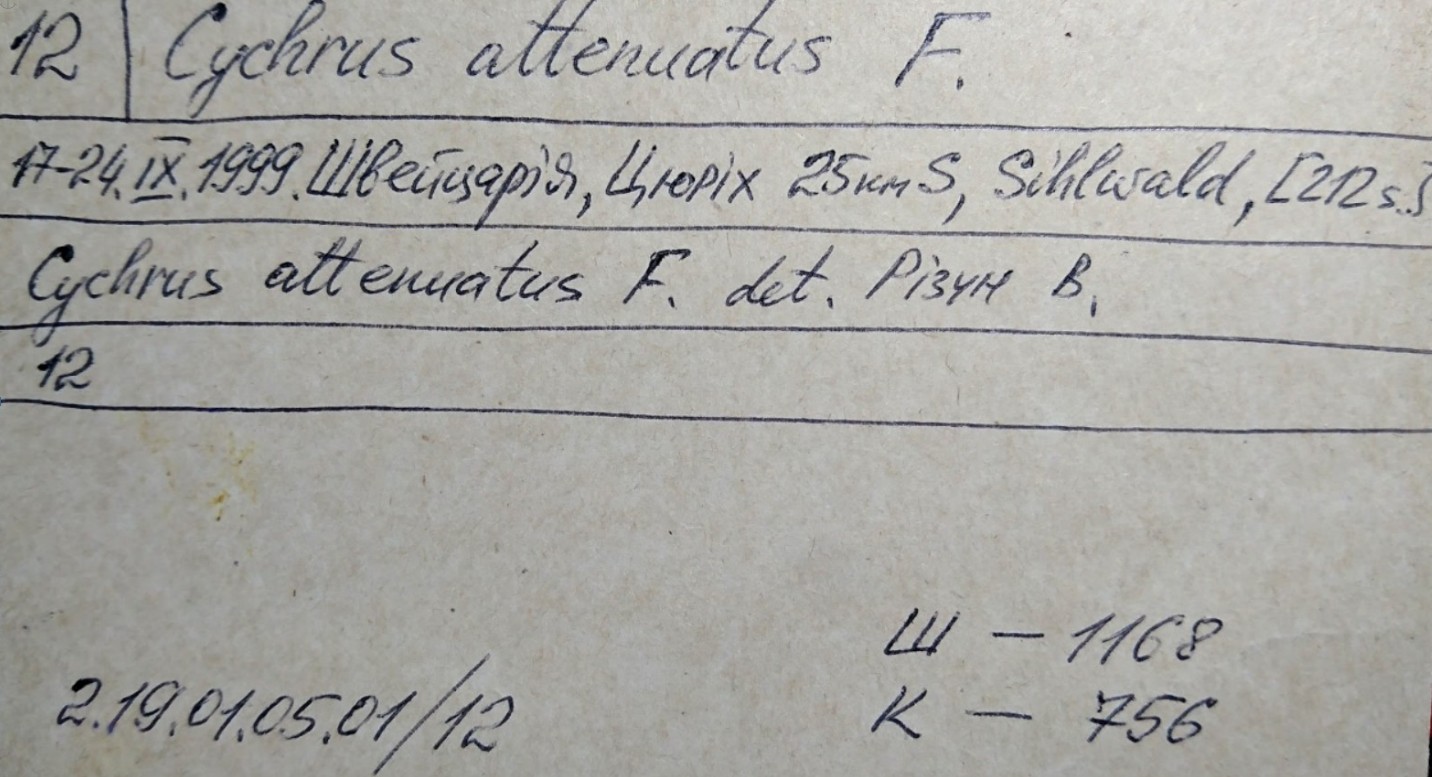 12 Cychrus attenuatus F.
17-24.IX.1999. Швейцарія, Цюріх 25км S, Sihlwald, [212 s.]
Cychrus attenuatus F. det. Різун В.
12
Ш – 1168
2.19.01.05.01/12 К – 756